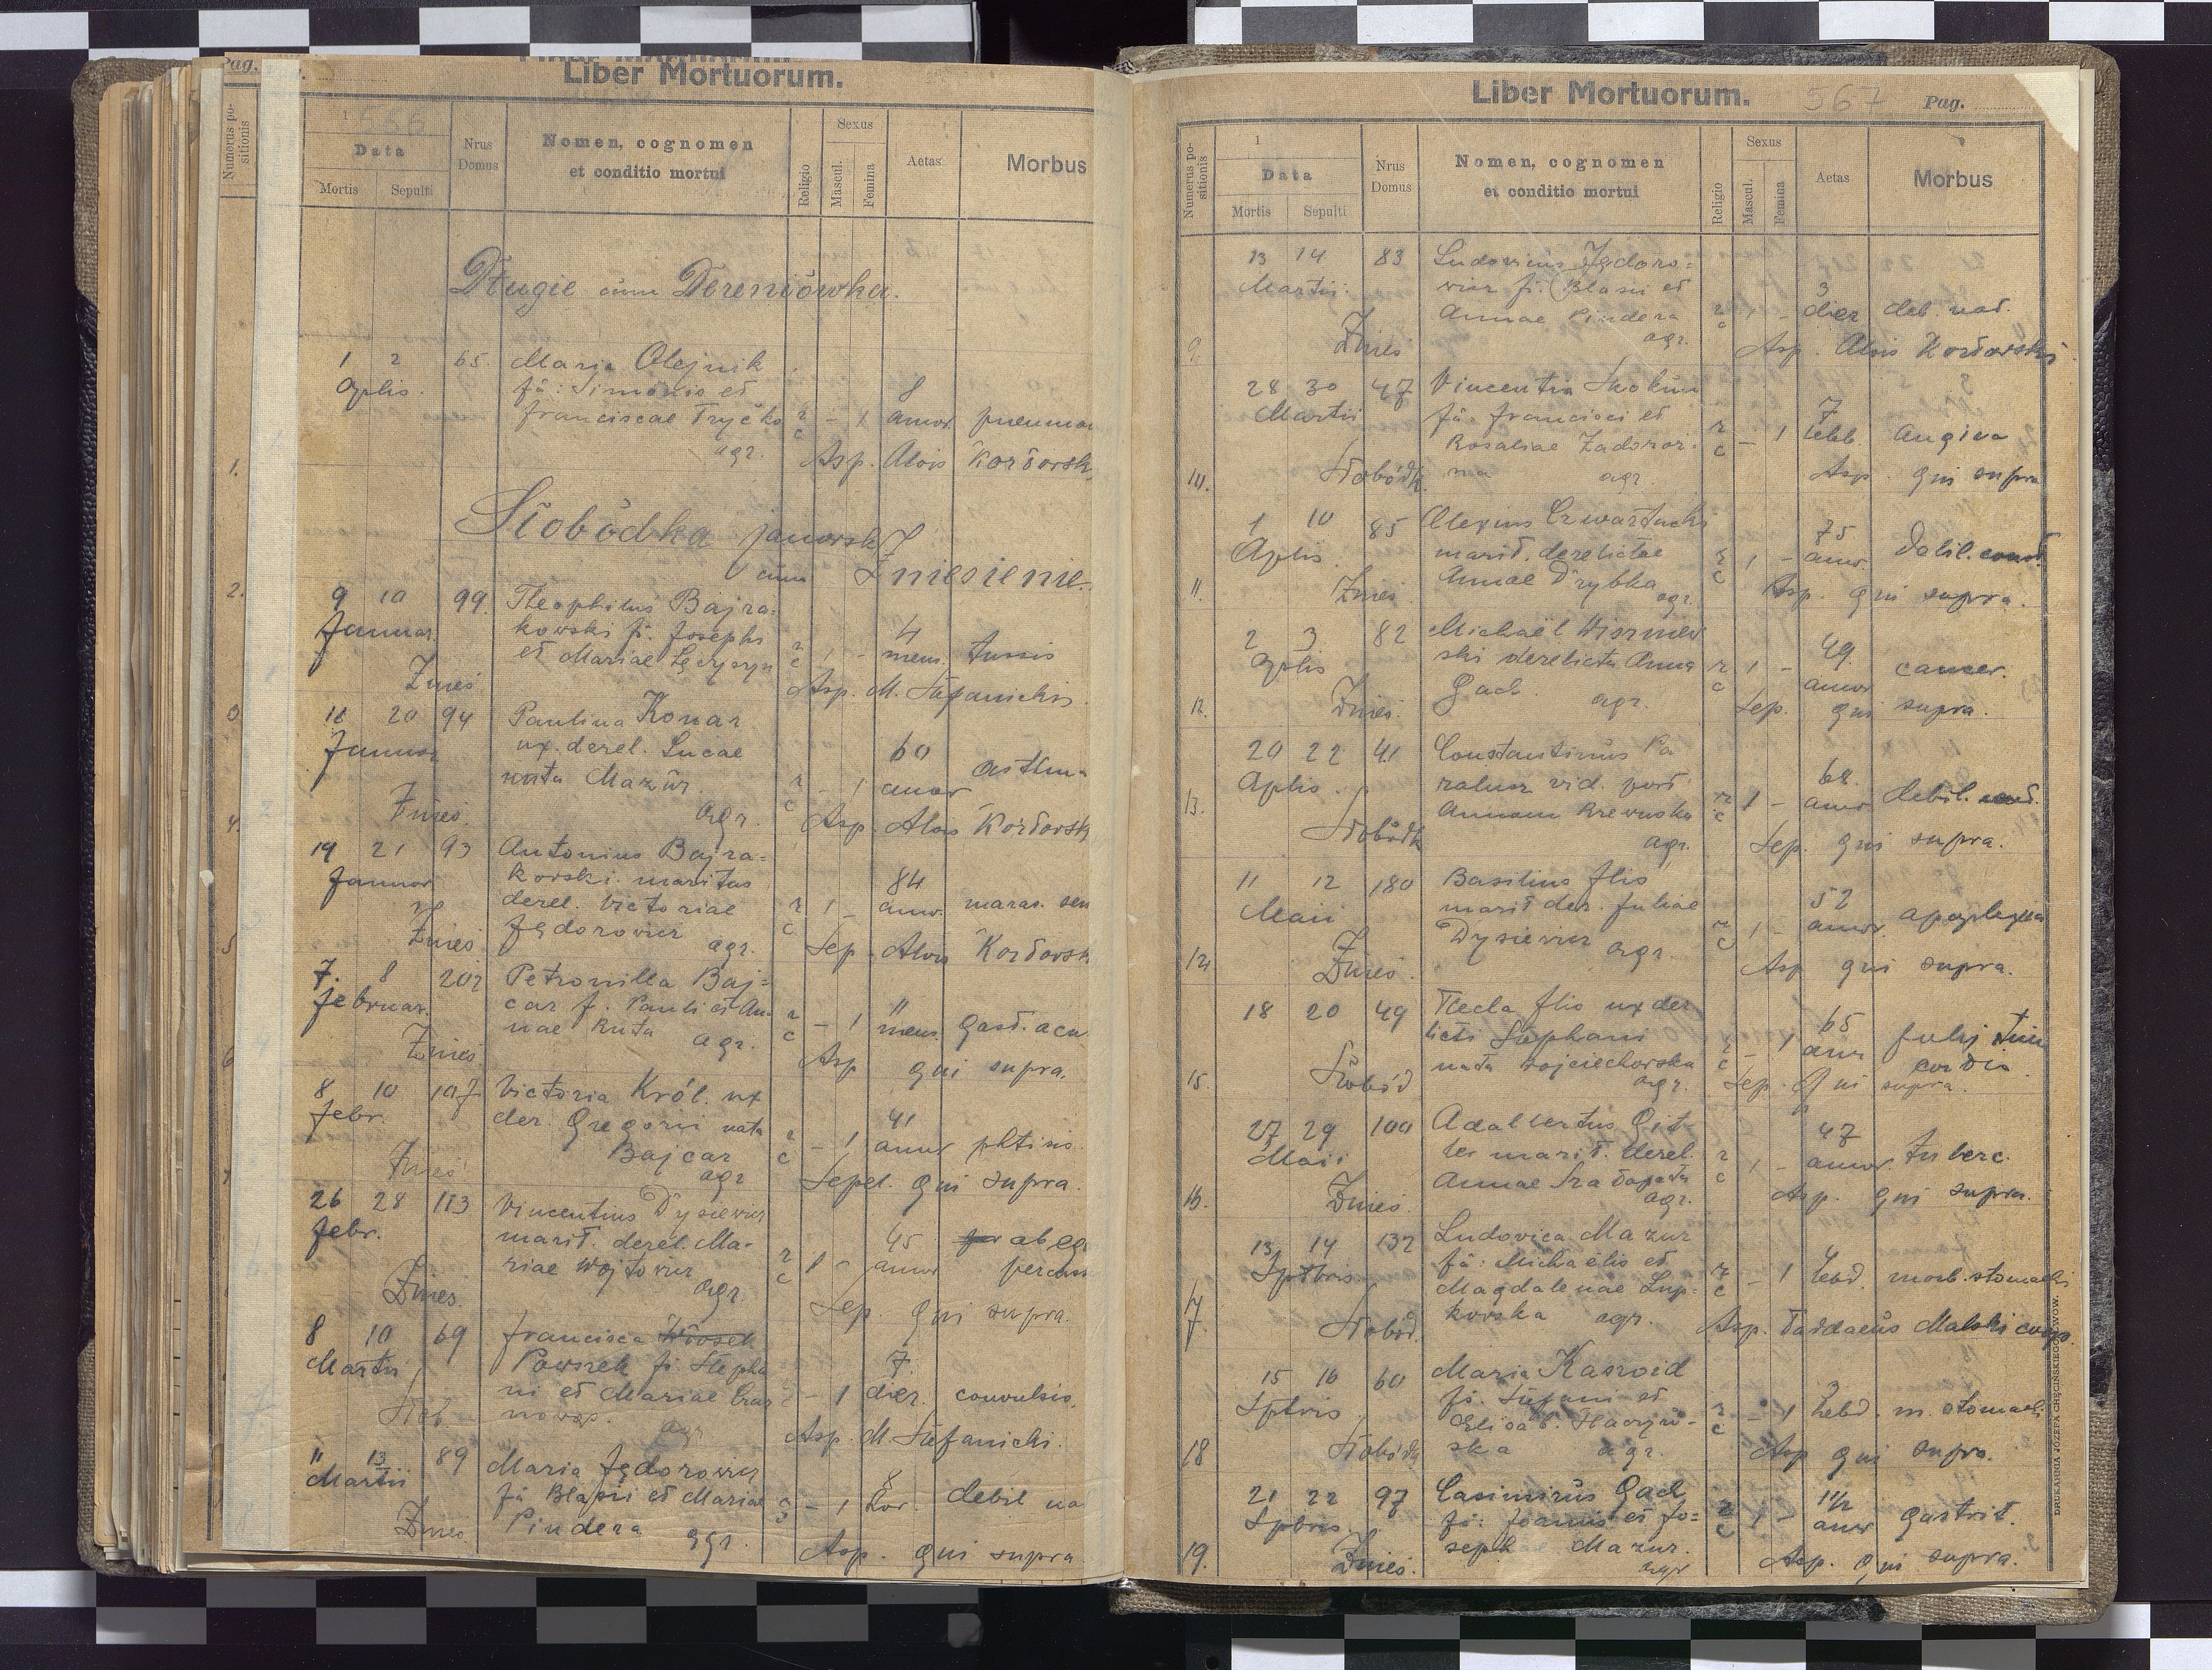 Pag.
Liber Mortuorum.
566
Numerus positionis
1
Data
Mortis Sepulti
Nrus Domus
Nomen, cognomen
et conditio mortui
Religio
Sexus
Mascul.
Femina
Aetas
Morbus
Długie cum Dereniówka.
1 2 65. Maria Olejnik
Aplis. fa: Simonis et 8
Franciscae Tryčko r c - 1 annor pneumon
agr.
1. Asp. Alois Kordorsk
Słobódka janowsk
cum Zniesienie.
2.
9 10 99. Theophilus Bajra-
Januar. kowski f. Josephi 4
et Mariae r c 1 - mens. tussis
Znies Asp. M. Stefanicki
3.
18 20 94 Paulina Konar
Januar ux. derel. Lucae 60
nata Mazur r c - 1 annor asthma
Znies. agr. Asp. Alois Kordorsk
4.
19 21 93 Antonius Bajra-
Januar korski. maritus 84
derel. Victoriae r c 1 - annor. maras. sen
Znies Jędorowicz agr. Sep. Alois Kordorsk
5
7. 8 202 Petronilla Baj-
Februar. car f. Pauli et An- 11
nae Ruta agr. r c - 1 mens. gast. acu
Znies Asp qui supra.
6
8 10 107 Victoria Król. ux
Febr. der. Gregorii nata 41
Bajcar r c - 1 annor phtisis
Znies agr Sepel. qui supra.
26 28 113 Vincentius Dysiewicz
Febr. marit. derel. Ma- 45 ab eq
riae Wojtowicz r c 1 - annor percuss
Znies. agr. Sep. qui supra.
8 10 69 Francisca
Martii Pawszek f. Stepha 7
ni et Mariae - 1 dier. convulsio.
Słob agr Asp. M. Stefanicki.
11 13 89 Maria Jędorowicz
Martii fa Blasii et Mariae 8
Pindera r c - 1 hor. debil na
Znies agr. Asp. qui supra
Liber Mortuorum. 567 Pag.
Numerus positionis
1
Data
Mortis Sepulti
Nrus Domus
Nomen, cognomen
et conditio mortui
Religio
Sexus
Mascul.
Femina
Aetas
Morbus
13 14 83 Ludovicus Jędoro-
Martii. wicz f. Blasii et 3
Annae Pindera r c 1 - dier deb. nat.
9. Znies agr. Asp. Alois Kordorski
28 30 47 Vincentia Skokun
Martii fa. Francisci et 7
Rosaliae Zadoroz- r c - 1 hebd. angina
10. Słobódk. na agr. Asp. qui supra
1 10 85 Alexius Czwartacki
Aplis. marit. derelictae 75
Annae Drybka r c 1 - annor. debil.
11. Znies agr. Asp. qui supra.
2 3 82 Michaël Wiszniew
Aplis ski derelicta Anna 49
Gach. r c 1 - annor cancer.
12. Znies. agr. Sep. qui supra.
20 22 41 Constantinus Pa
Aplis. ralusz vid. post 68
Annam r c 1 - annor debil.
13. Słobódk agr. Sep. qui supra.
11 12 180 Basilius Ilis
Maii marit der. Juliae 52
Dysiewicz agr. r c 1 - annor. apoplexia
14. Znies. Asp qui supra.
18 20 49 Tecla Ilis ux der-
licti Stephani 65
nata Wojciechowska r c - 1 ann
15. Słobód agr. Sep. qui supra. cordis
27 29 100 Adalbertus Git-
Maii ler marit. derel. 47
Annae r c 1 - annor. tuberc.
16. Znies. agr. Asp. qui supra.
13 14 132 Ludovica Mazur
Sptbris. fa: Michaëlis et
Magdalenae Lup- r c - 1 hebd. morb. stomachi
17 Słobód. kowska agr. Asp. Taddaeus Malski coop.
15 16 60 Maria
Sptbris fa. Stefani et 3
Elisab. r c - 1 hebd. m. stomachi
18 Słobódk ska agr. Asp qui supra.
21 22 97 Casimirus Gach
Sptbris fa: Joannis et Jo- 1½
seph Mazur. r c 1 - annor gastrit.
19. Znies. agr Asp. qui supra.
DRUKARNIA JÓZEFA CHĘCIŃSKIEGO LWÓW.